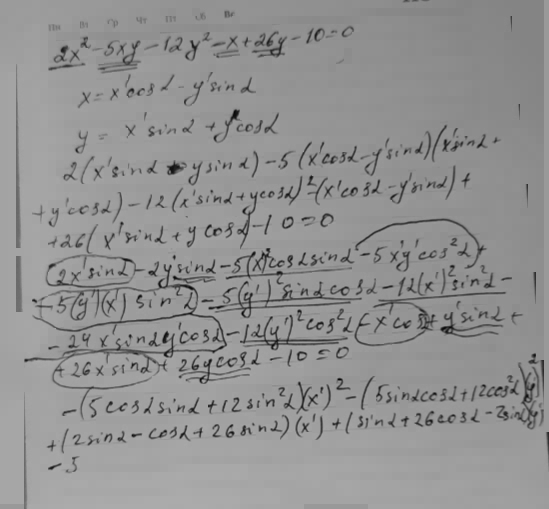 Пн Вт Ср Чт Пт Сб Вс
2x² - 5xy - 12y² - x + 26y - 10 = 0
x = x'cosα - y'sinα
y = x'sinα + y'cosα
2(x'sinα - ysinα) - 5(x'cosα - y'sinα)(x'sinα +
+ y'cosα) - 12(x'sinα + ycosα)² - (x'cosα - y'sinα) +
+ 26(x'sinα + ycosα) - 10 = 0
2x'sinα - 2y'sinα - 5(x')²cosαsinα - 5x'y'cos²α +
+ 5(y')(x')sin²α - 5(y')²sinαcosα - 12(x')²sin²α -
- 24x'sinαy'cosα - 12(y')²cos²α - x'cosα + y'sinα +
+ 26x'sinα + 26ycosα - 10 = 0
- (5cosαsinα + 12sin²α)(x')² - (5sinαcosα + 12cos²α)(y')²
+ (2sinα - cosα + 26sinα)(x') + (sinα + 26cosα - 2sinα)(y')
- 5